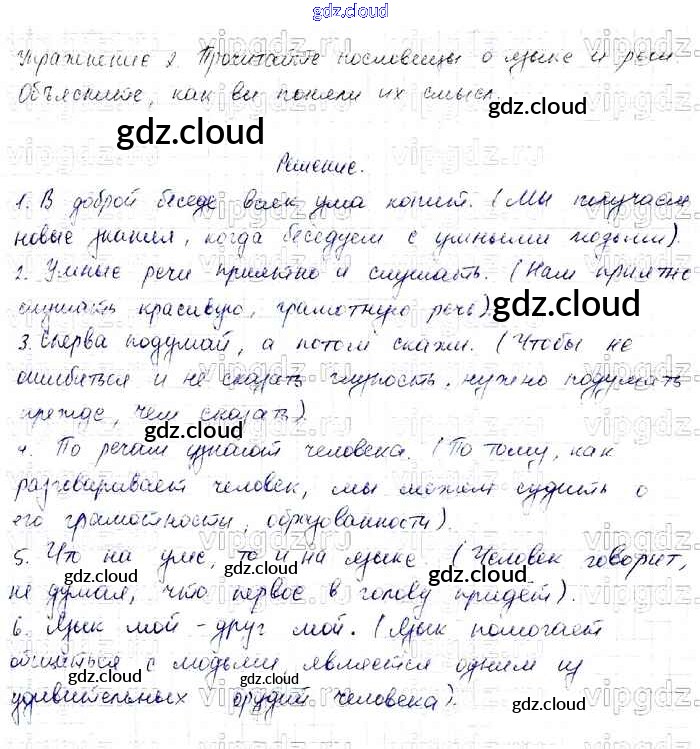 gdz.cloud
Упражнение 2. Прочитайте пословицы о языке и речи.
Объясните, как вы поняли их смысл.
gdz.cloud
gdz.cloud
Решение.
1. В доброй беседе всяк ума копит. (Мы получаем
новые знания, когда беседуем с умными людьми).
2. Умные речи приятно и слушать. (Нам приятно
слушать красивую, грамотную речь).
gdz.cloud
3. Сперва подумай, а потом скажи. (Чтобы не
ошибиться и не сказать глупость, нужно подумать
прежде, чем сказать).
gdz.cloud
4. По речам узнают человека. (По тому, как
разговаривает человек, мы можем судить о
его грамотности, образованности).
5. Что на уме, то и на языке. (Человек говорит,
gdz.cloud
gdz.cloud
не думая, что первое в голову придет).
6. Язык мой - друг мой. (Язык помогает
общаться с людьми, является одним из
gdz.cloud
gdz.cloud
удивительных орудий человека).